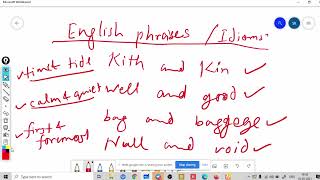 English phrases / Idioms
time & tide Kith and Kin
calm & quiet well and good
bag and baggege
first & foremost Null and void